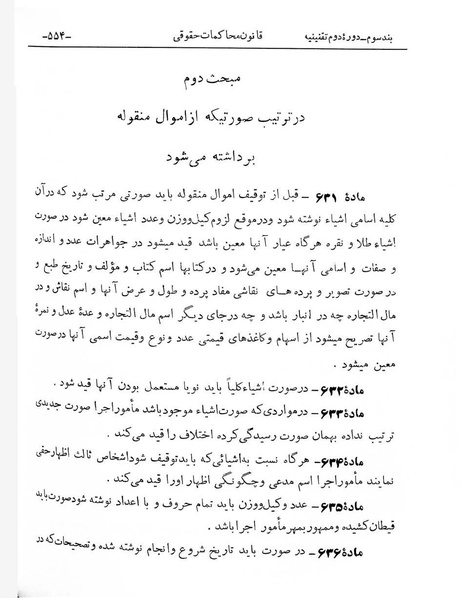 بند سوم ـ دورهٔ دوم تقنینیه
قانون محاکمات حقوقی
-۵۵۴-
مبحث دوم
در ترتیب صورتیکه از اموال منقوله
برداشته می‌شود
مادهٔ ۶۳۱ - قبل از توقیف اموال منقوله باید صورتی مرتب شود که در آن
کلیه اسامی اشیاء نوشته شود و در موقع لزوم کیل و وزن و عدد اشیاء معین شود در صورت
اشیاء طلا و نقره هرگاه عیار آنها معین باشد قید میشود در جواهرات عدد و اندازه
و صفات و اسامی آنها معین می‌شود و در کتابها اسم کتاب و مؤلف و تاریخ طبع و
در صورت تصویر و پرده های نقاشی مفاد پرده و طول و عرض آنها و اسم نقاش و در
مال التجاره چه در انبار باشد و چه در جای دیگر اسم مال التجاره و عدهٔ عدل و نمرهٔ
آنها تصریح میشود از اسهام و کاغذهای قیمتی عدد و نوع و قیمت اسمی آنها در صورت
معین میشود .
مادهٔ ۶۳۲ - در صورت اشیاء کلیاً باید نو یا مستعمل بودن آنها قید شود .
مادهٔ ۶۳۳ - در مواردی که صورت اشیاء موجود باشد مأمور اجرا صورت جدیدی
ترتیب نداده بهمان صورت رسیدگی کرده اختلاف را قید می‌کند .
مادهٔ ۶۳۴ - هرگاه نسبت به اشیائی که باید توقیف شود اشخاص ثالث اظهار حقی
نمایند مأمور اجرا اسم مدعی و چگونگی اظهار او را قید می‌کند .
مادهٔ ۶۳۵ - عدد و کیل و وزن باید تمام حروف و با اعداد نوشته شود صورت باید
قیطان کشیده و ممهور بمهر مأمور اجرا باشد .
مادهٔ ۶۳۶ - در صورت باید تاریخ شروع و انجام نوشته شده و تصحیحات که در